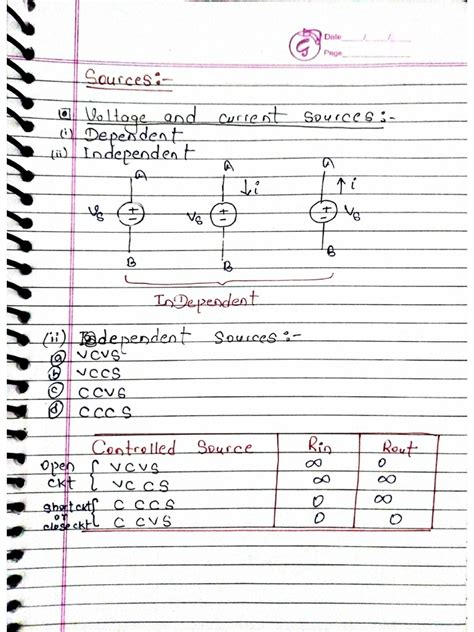 Date / /
Page
Sources:-
Voltage and current sources:-
(i) Dependent
(ii) Independent
A A ↓i A ↑i
Vs + - Vs + - + - Vs
B B B
InDependent
(ii) Dependent Sources:-
(a) VCVS
(b) VCCS
(c) CCVS
(d) CCCS
Controlled Source Rin Rout
open { VCVS ∞ 0
ckt VCCS ∞ ∞
short ckt { C CCS 0 ∞
or
close ckt C CVS 0 0